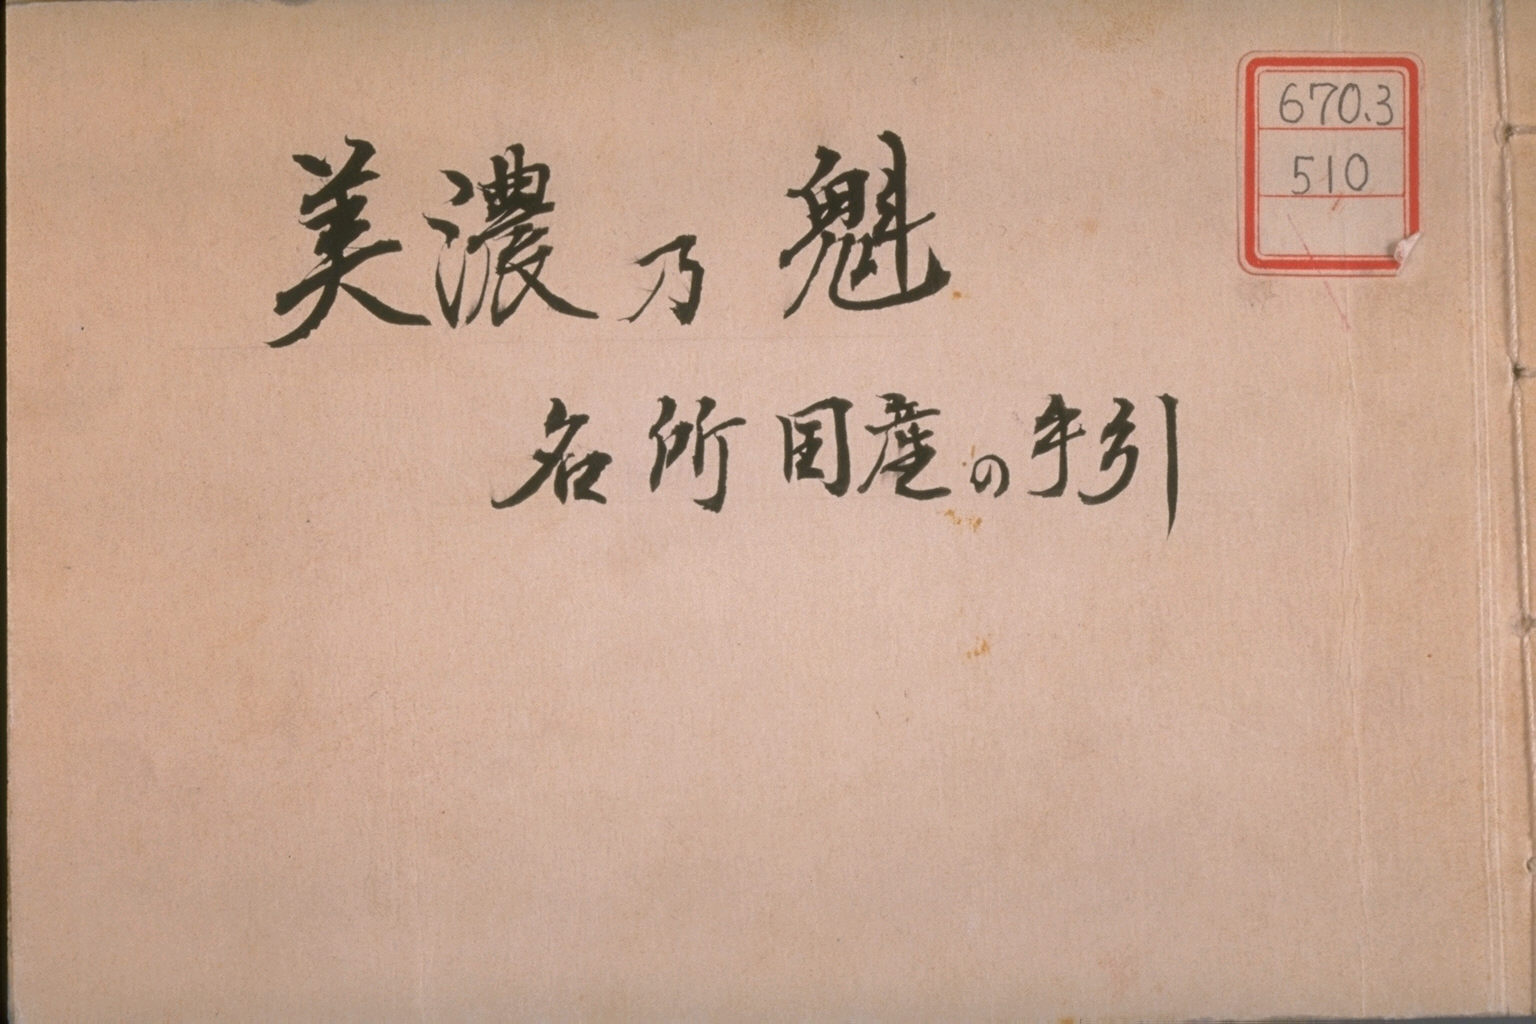 美濃乃魁
名所国産の手引
670.3
510